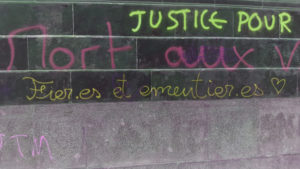 JUSTICE POUR
Mort aux v
Fier.es et ementier.es ♡